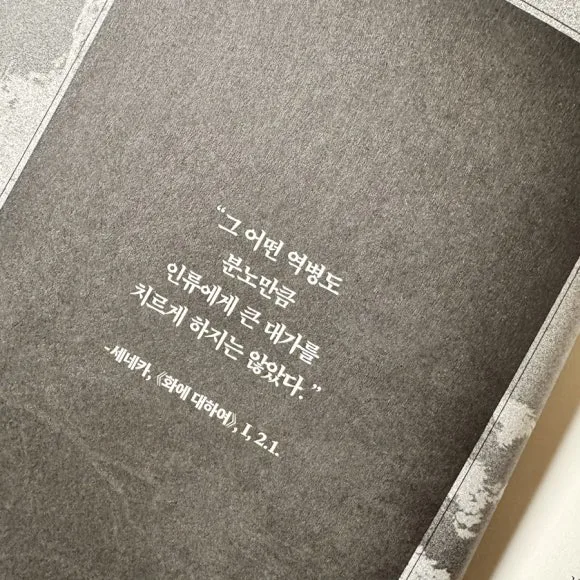 “그 어떤 역병도
분노만큼
인류에게 큰 대가를
치르게 하지는 않았다.”
-세네카, 《화에 대하여》, I, 2.1.